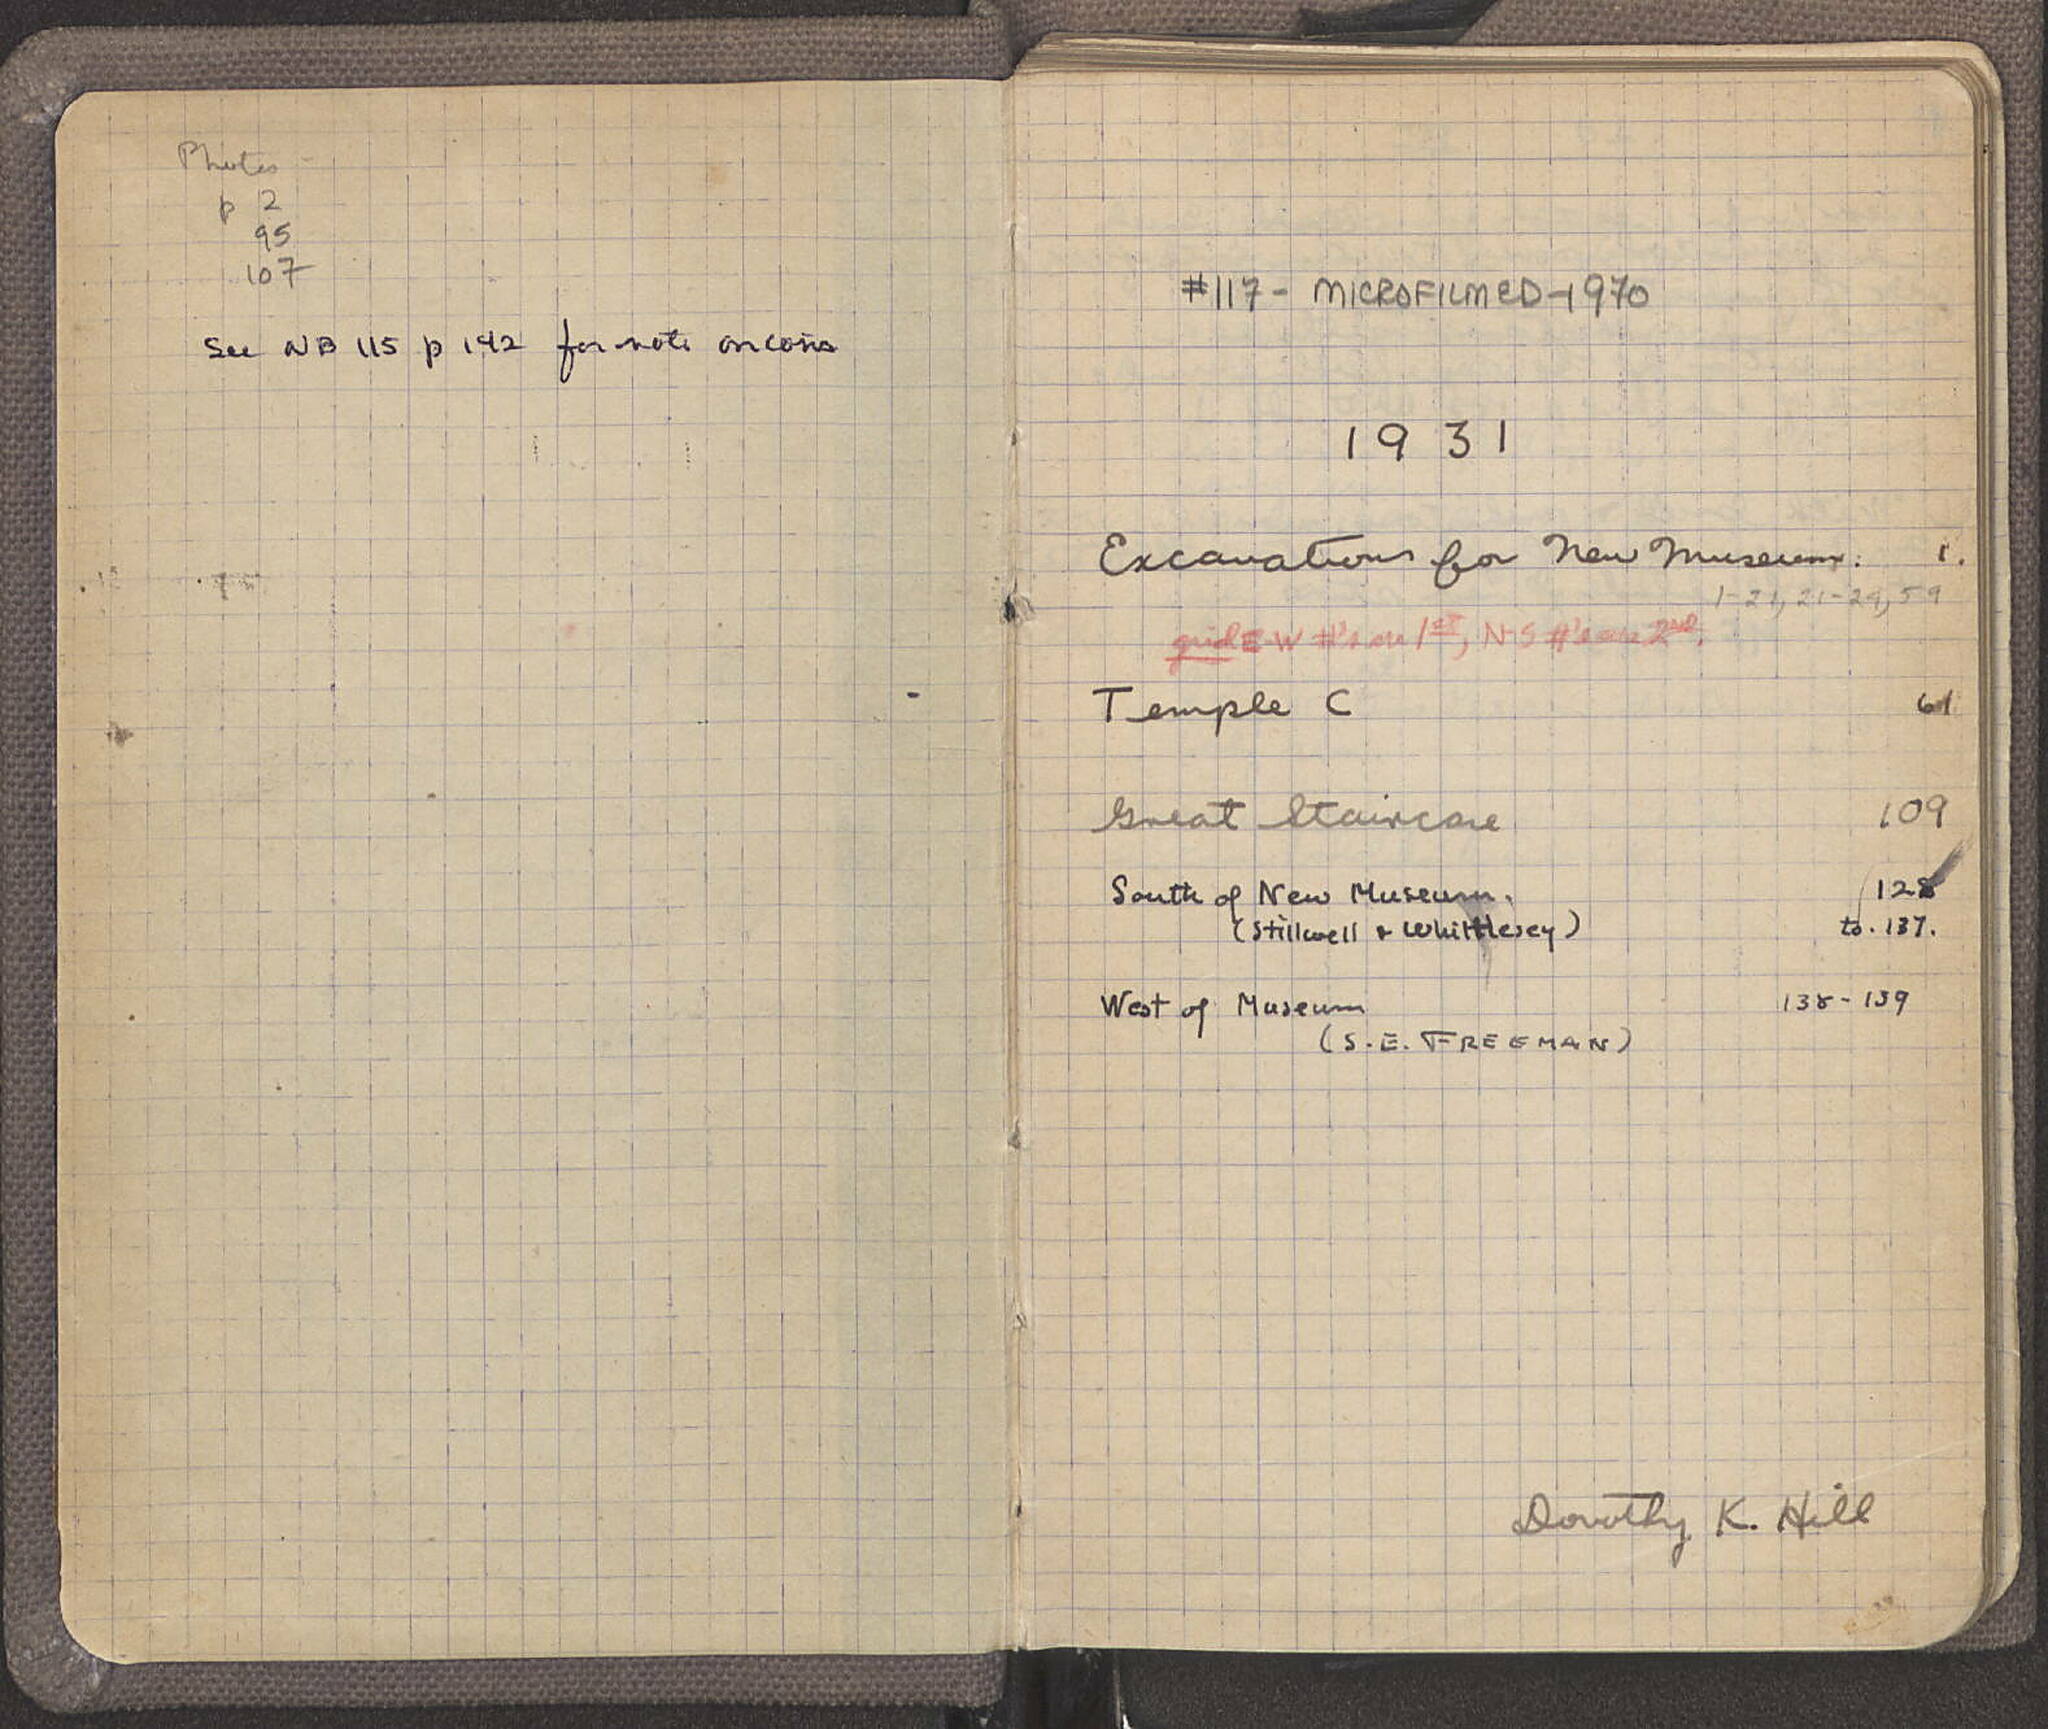 Photos
p 2
95
107
See NB 115 p 142 for note on coins
#117 - MICROFILMED - 1970
1931
Excavations for New Museum: 1.
1-21, 21-29, 59
grid E-W #'s are 1st, N-S #'s are 2nd.
Temple C 61
Great Staircase 109
South of New Museum. 128
(Stillwell & Whittlesey) to. 137.
West of Museum 138-139
(S. E. FREEMAN)
Dorothy K. Hill